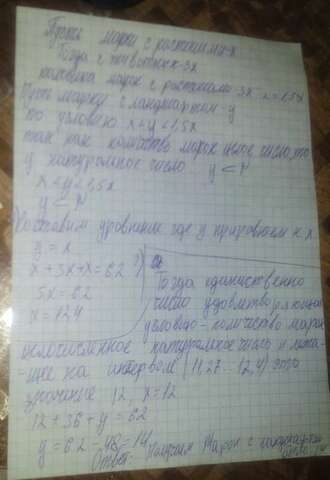 Пусть марки с растениями-x
Тогда с животными-3x
половина марок с растениями 3x =1,5x
Пусть марки с ландшафтом-y
по условию x+y<1,5x
так как количество марок целое число, то
y натуральное число y
x+y<1,5x
y
Составим уравнение где y приравняем к x
y=x
x+3x+x=62
5x=62
x=12,4
Тогда единственно
число удовлетворяющее
условию-количество марок
целочисленное натуральное число и лежа-
щее на интервале (11,27...12,4) это
значение 12, x=12
12+36+y=62
y=62-48=14
Ответ: Получаем марок с